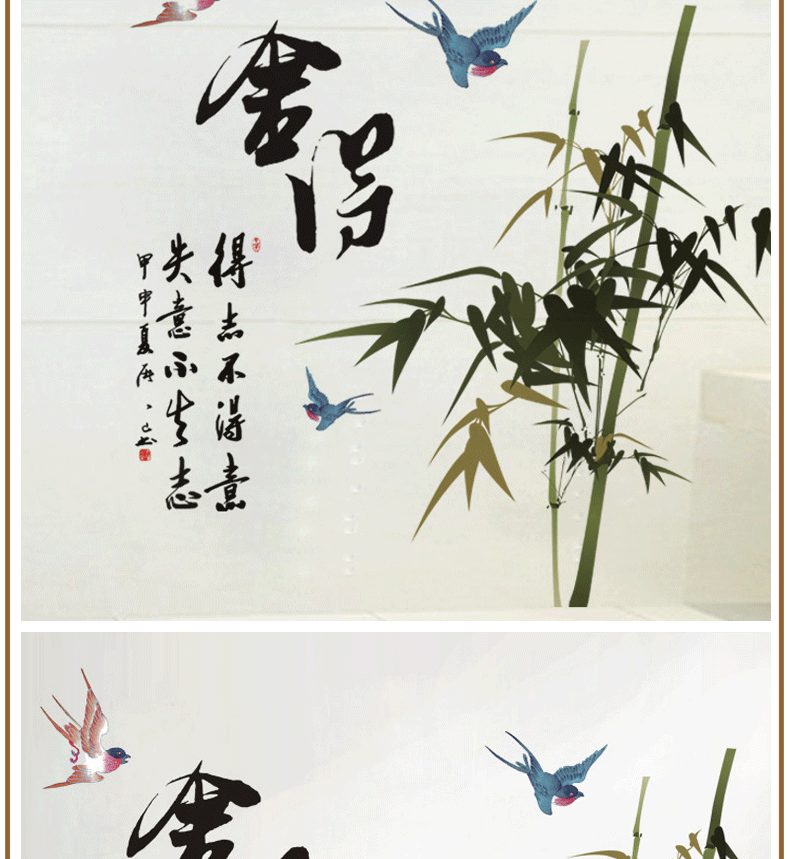 舍得
得志不得意
失意不失志
甲申夏
舍